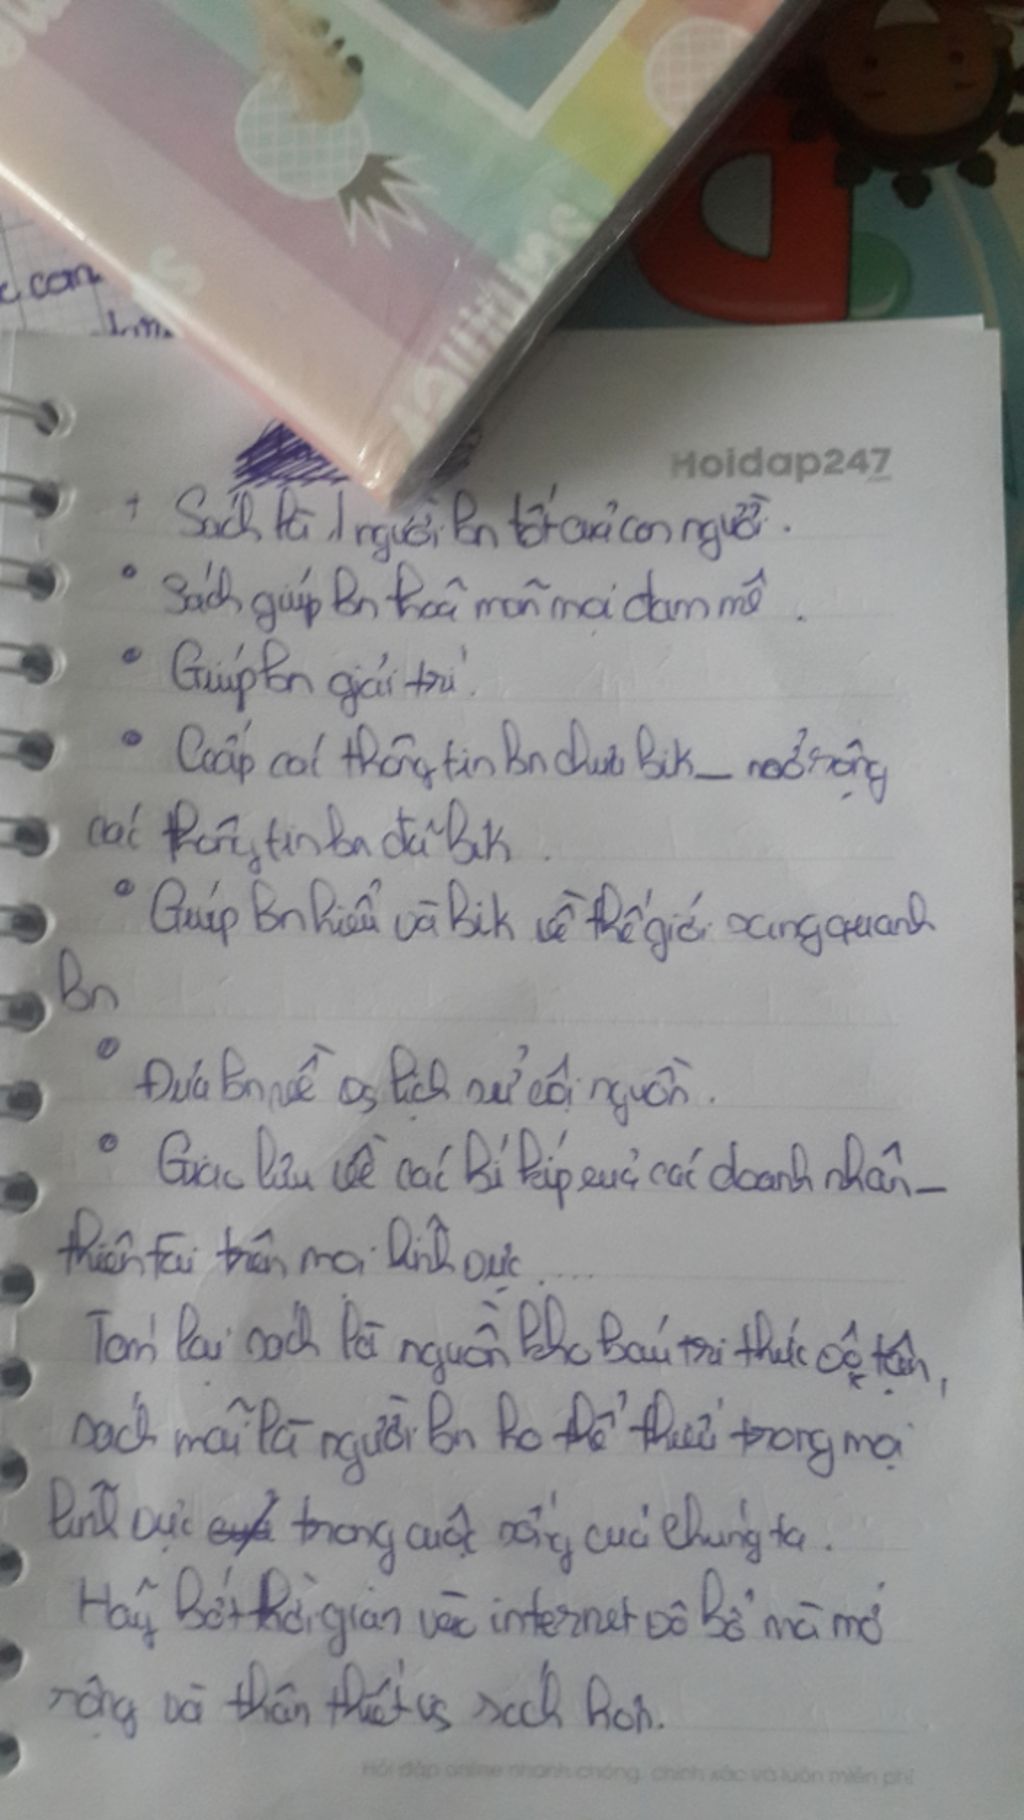 c con
Hoidap247
+ Sách là 1 người bn tốt của con người.
• Sách giúp bn thoã mãn mọi đam mê.
• Giúp bn giải trí.
• Ccấp các thông tin bn chưa bik _ mở rộng
các thông tin bn đã bik.
• Giúp bn hiểu và bik về thế giới xung quanh
bn
• Đưa bn về vs lịch sử cội nguồn.
• Giao lưu về các bí kíp của các doanh nhân _
thiên tài trên mọi lĩnh vực....
Tóm lại sách là nguồn kho báu tri thức vô tận,
sách mãi là người bn ko thể thiếu trong mọi
lĩnh vực trong cuộc sống của chúng ta.
Hãy bớt thời gian vào internet vô bổ mà mở
rộng và thân thiết vs sách hơn.
Hỏi đáp online nhanh chóng, chính xác và luôn miễn phí